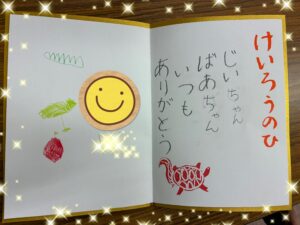 けいろうのひ
じいちゃん
ばあちゃん
いつも
ありがとう